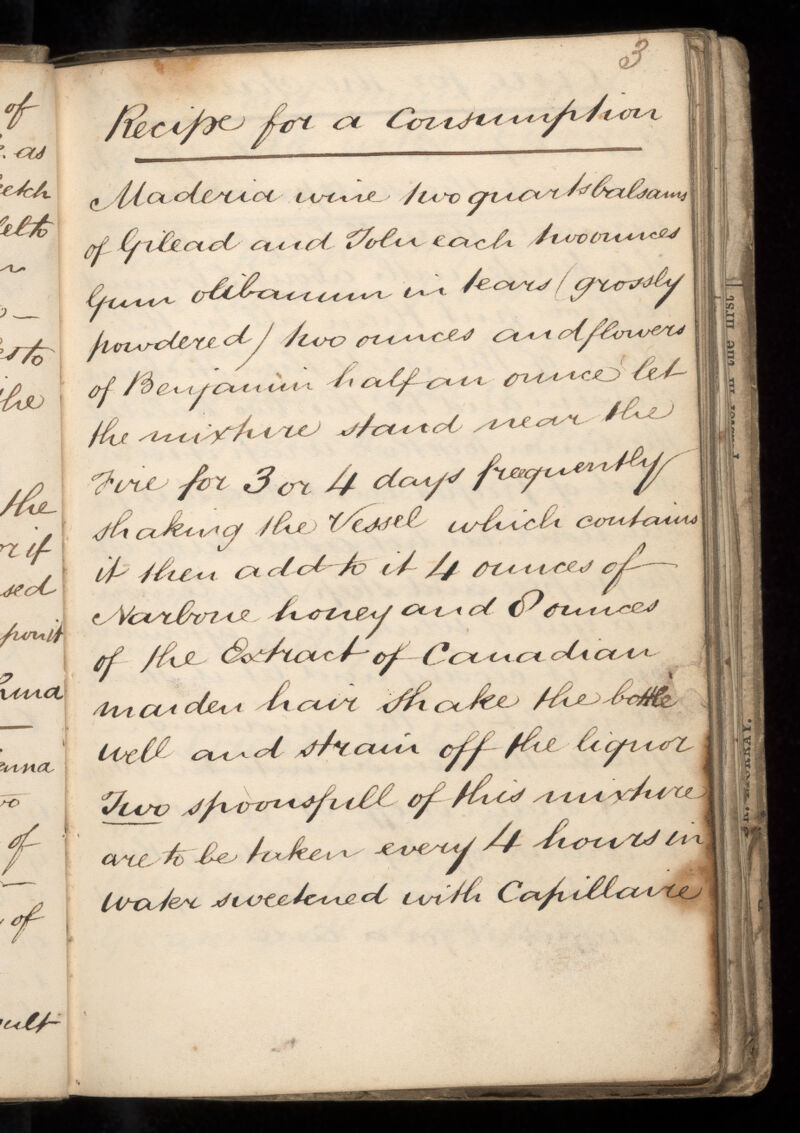 3
Recipe for a Consumption
Maderia wine two quarts balsams
of Gilead and Tolu each two ounces
Gum olibanum in tears (grossly
powdered) two ounces and flowers
of Benjamin half an ounce let
the mixture stand near the
Fire for 3 or 4 days frequently
shaking the Vessel which contains
it then add to it 4 ounces of
Narbone honey and 8 ounces
of the Extract of Canadian
maiden hair shake the bottle
well and strain off the liquor
Two spoonsfull of this mixture
are to be taken every 4 hours in
water sweetened with Capillaire
of
as
etch
of